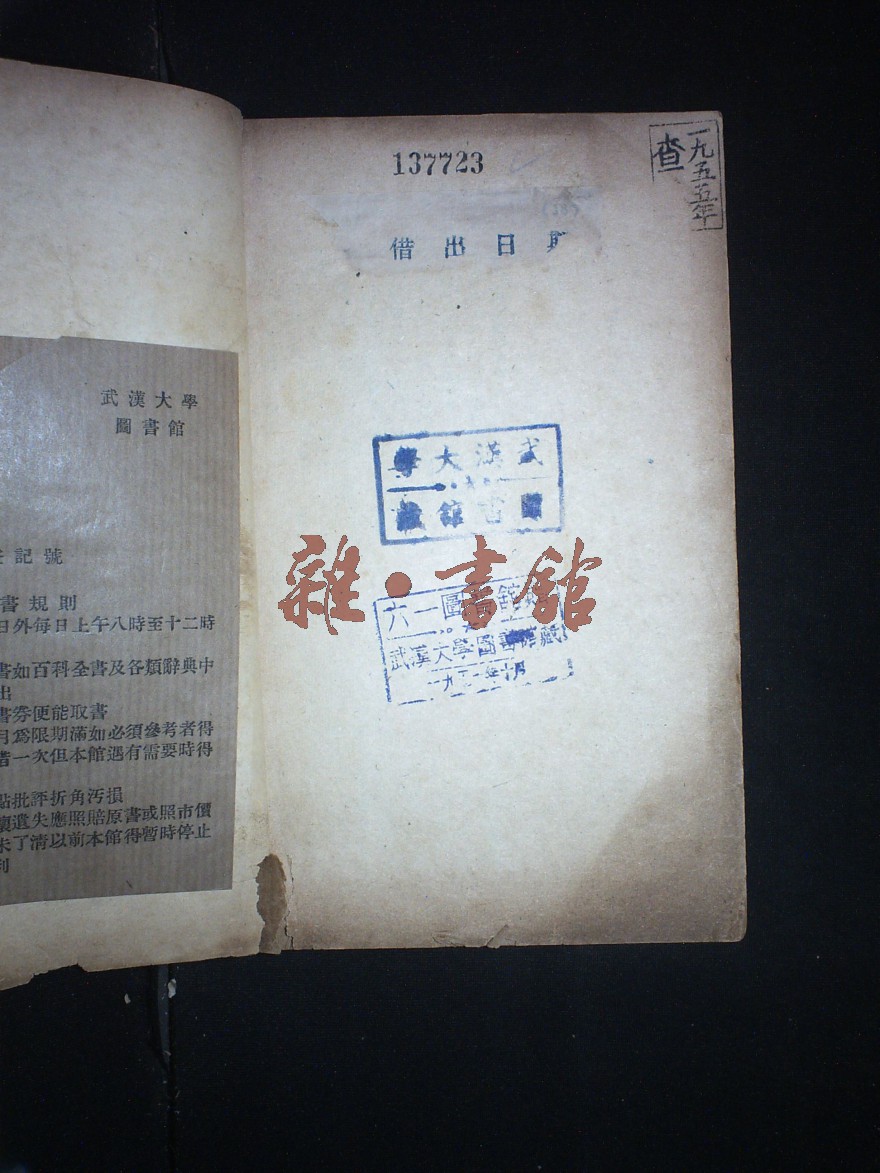 武漢大學
圖書館
記號
書規則
日外每日上午八時至十二時
書如百科全書及各類辭典中
出
書券便能取書
月為限期滿如必須參考者得
借一次但本館遇有需要時得
點批評折角汚損
壞遺失應照賠原書或照市價
未了清以前本館得暫時停止
137723
借出日期
一九五五年
查
武漢大學
圖書館
雜·書館
六一圖書館
武漢大學圖書館藏